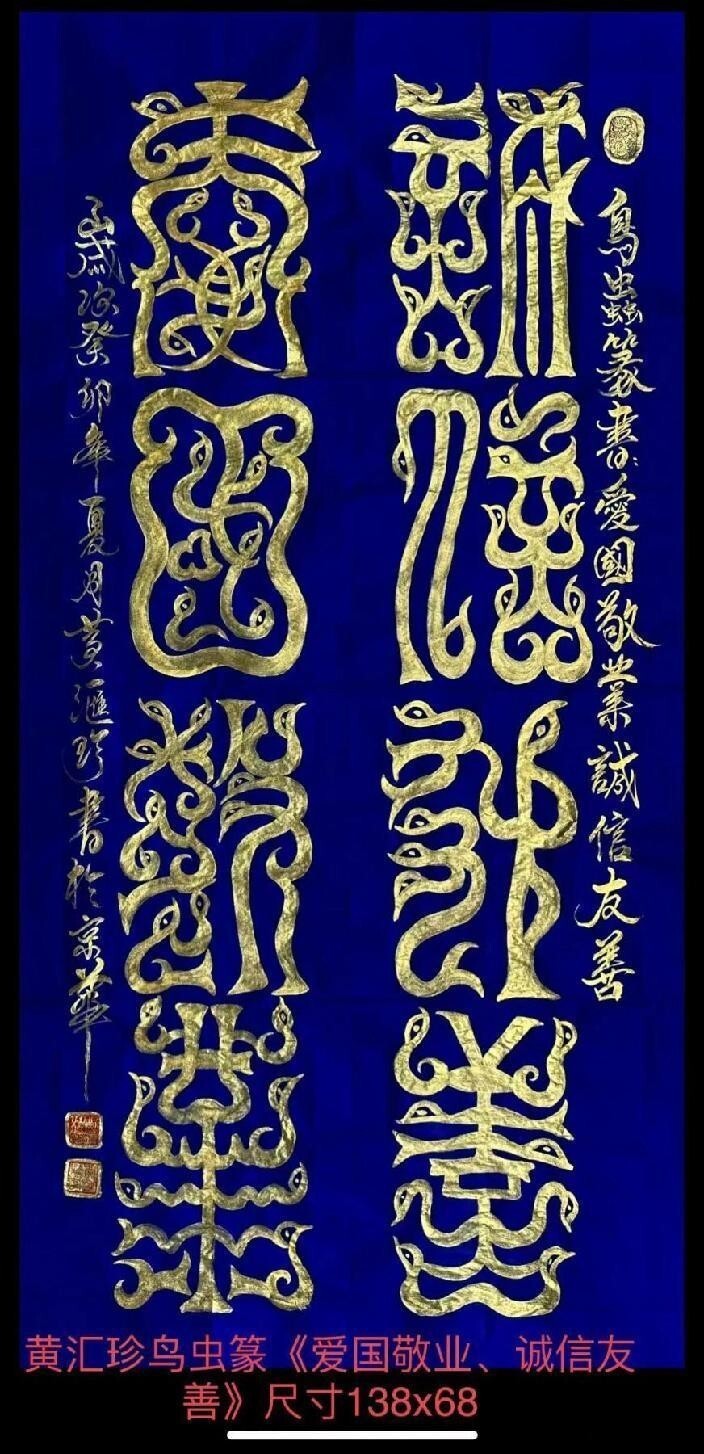 鳥蟲篆書:愛國敬業誠信友善
愛國敬業
誠信友善
歲次癸卯年夏月黃滙珍書於京華
黄汇珍鸟虫篆《爱国敬业、诚信友
善》尺寸138x68